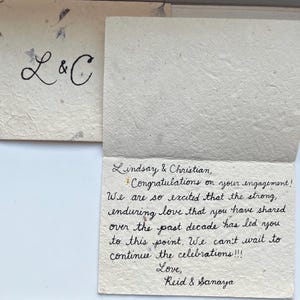 L & C
Lindsay & Christian,
Congratulations on your engagement!
We are so excited that the strong,
enduring love that you have shared
over the past decade has led you
to this point. We can't wait to
continue the celebrations!!!
Love,
Reid & Sanaya